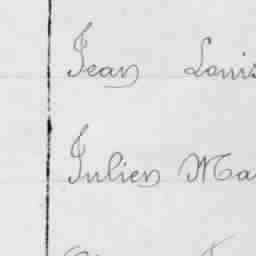 Jean Louis
Julien Ma